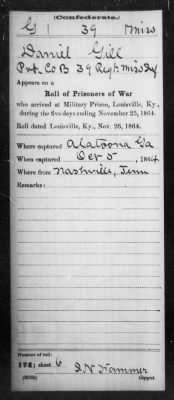 (Confederate.)
G | 39 | Miss
Daniel Gill
Pvt. Co B 39 Reg't. Miss Inf.
Appears on a
Roll of Prisoners of War
who arrived at Military Prison, Louisville, Ky.,
during the five days ending November 25, 1864.
Roll dated Louisville, Ky., Nov. 26, 1864.
Where captured Alatoona Ga
When captured Oct 5, 1864
Where from Nashville, Tenn
Remarks:
Number of roll:
174; sheet 6 S N Hammer
Copyist.